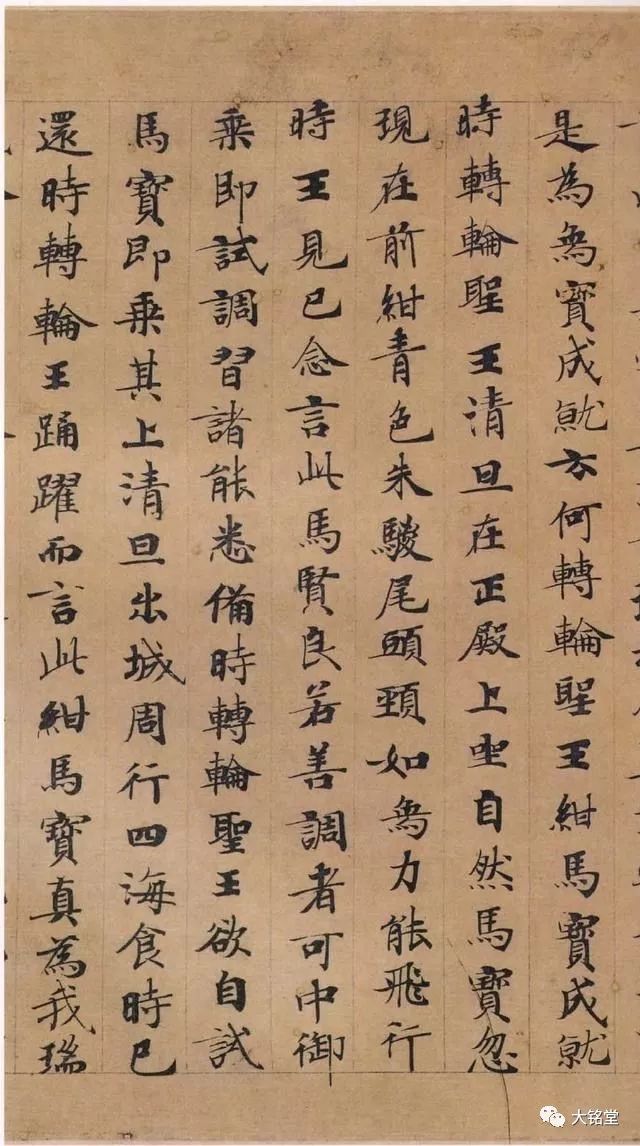 是為象寶成就云何轉輪聖王紺馬寶成就
時轉輪聖王清旦在正殿上坐自然馬寶忽
現在前紺青色朱騣尾頭頸如象力能飛行
時王見已念言此馬賢良若善調者可中御
乘即試調習諸能悉備時轉輪聖王欲自試
馬寶即乘其上清旦出城周行四海食時已
還時轉輪王踊躍而言此紺馬寶真為我瑞
大铭堂